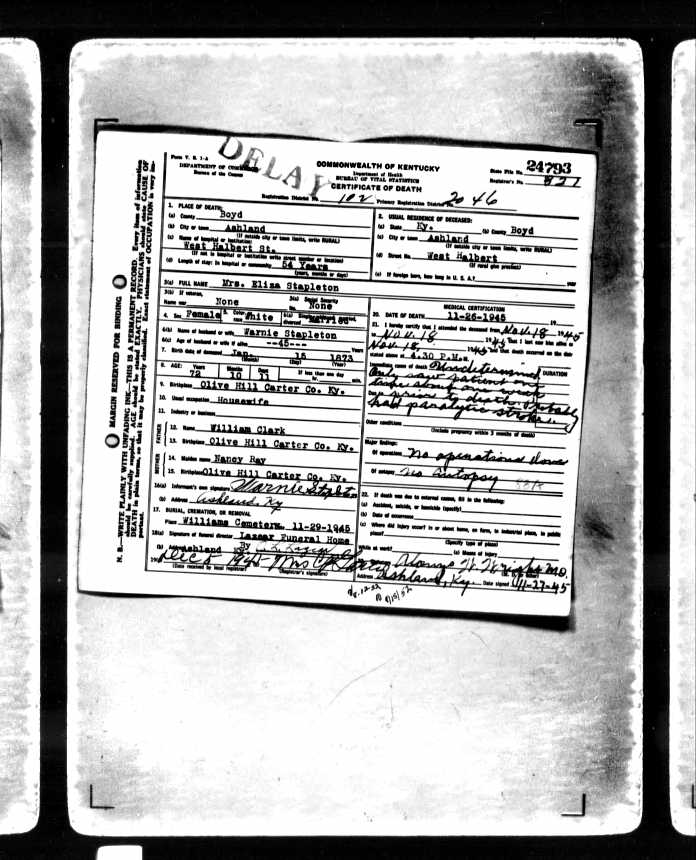 Form V. S. 1-A
DEPARTMENT OF COMMERCE
Bureau of the Census
DELAY
COMMONWEALTH OF KENTUCKY
Department of Health
BUREAU OF VITAL STATISTICS
CERTIFICATE OF DEATH
State File No. 24793
Registrar's No. 821
Registration District No. 102 Primary Registration District 2046
MARGIN RESERVED FOR BINDING
N. B.—WRITE PLAINLY WITH UNFADING INK—THIS IS A PERMANENT RECORD. Every item of information
should be carefully supplied. AGE should be stated EXACTLY. PHYSICIANS should state CAUSE OF
DEATH in plain terms, so that it may be properly classified. Exact statement of OCCUPATION is very im-
portant.
1. PLACE OF DEATH:
(a) County Boyd
(b) City or town Ashland
(If outside city or town limits, write RURAL)
(c) Name of hospital or institution:
West Halbert St.
(If not in hospital or institution write street number or location)
(d) Length of stay: In hospital or community 54 Years
(years, months or days)
2. USUAL RESIDENCE OF DECEASED:
(a) State Ky. (b) County Boyd
(c) City or town Ashland
(If outside city or town limits, write RURAL)
(d) Street No. West Halbert
(If rural give precinct)
(e) If foreign born, how long in U. S. A.? year
3(a) FULL NAME Mrs. Eliza Stapleton
3(b) If veteran,
Name war None
3(c) Social Security
No. None
4. Sex Female 5. Color or race White 6(a) Married
6(b) Name of husband or wife Warnie Stapleton
6(c) Age of husband or wife if alive --45--- Years
7. Birth date of deceased Jan. 15 1873
(Month) (Day) (Year)
8. AGE: Years Months Days If less than one day
72 10 11 hr. min.
9. Birthplace Olive Hill Carter Co. Ky.
10. Usual occupation Housewife
11. Industry or business
FATHER
12. Name William Clark
13. Birthplace Olive Hill Carter Co. Ky.
MOTHER
14. Maiden name Nancy Ray
15. Birthplace Olive Hill Carter Co. Ky.
16(a) Informant's own signature Warnie Stapleton
(b) Address Ashland, Ky
17. BURIAL, CREMATION, OR REMOVAL
Place Williams Cemetery, 11-29-1945
18(a) Signature of funeral director Lazear Funeral Home
(b) Ashland By
19(a) Dec 5 1945 Mrs
(Date received by local registrar) (Registrar's signature)
MEDICAL CERTIFICATION
20. DATE OF DEATH 11-26-1945 19
21. I hereby certify that I attended the deceased from Nov. 18 1945
to Nov. 18 1945 That I last saw him alive on
Nov. 18, 1945 and that death occurred on the date
stated above at 4.30 P.M.
Immediate cause of death Undetermined DURATION
Only saw patient one
time about one week
Due to prior to death. Probably
had paralytic stroke.
Other conditions
(Include pregnancy within 3 months of death)
Major findings:
Of operations No operations done
Of autopsy No autopsy
22. If death was due to external causes, fill in the following:
(a) Accident, suicide, or homicide (specify)
(b) Date of occurrence
(c) Where did injury occur? in or about home, on farm, in industrial place, in public
place?
(Specify type of place)
While at work? (e) Means of injury
M.D.
Address Ashland, Ky. Date signed 11-27-45